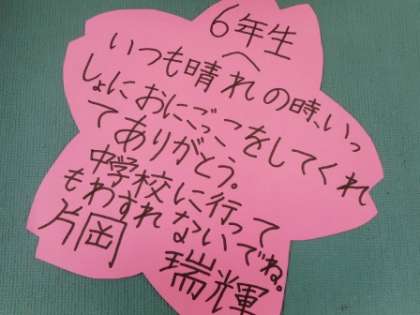 6年生
へ
いつも晴れの時、いっ
しょにおにごっこをしてくれ
てありがとう。
中学校に行って
もわすれないでね。
片岡 瑞輝